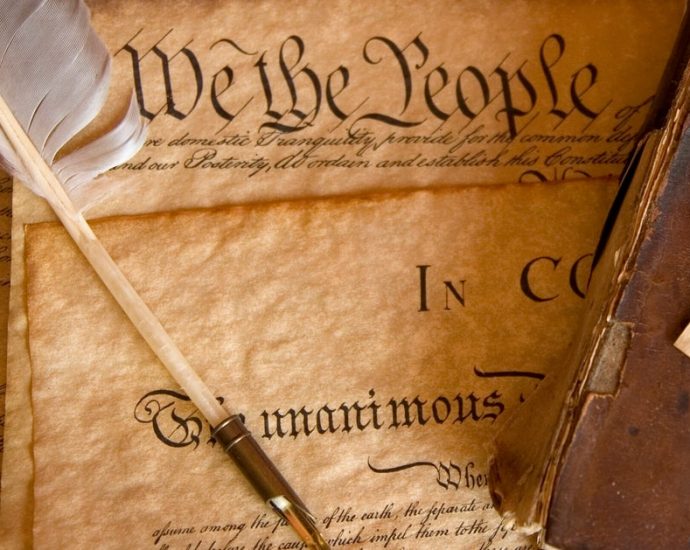 We the People of
domestic Tranquility, provide for the common
and our Posterity, do ordain and establish this Constitu
IN CO
The unanimous
When
assume among the of the earth, the separate
which impel them to the